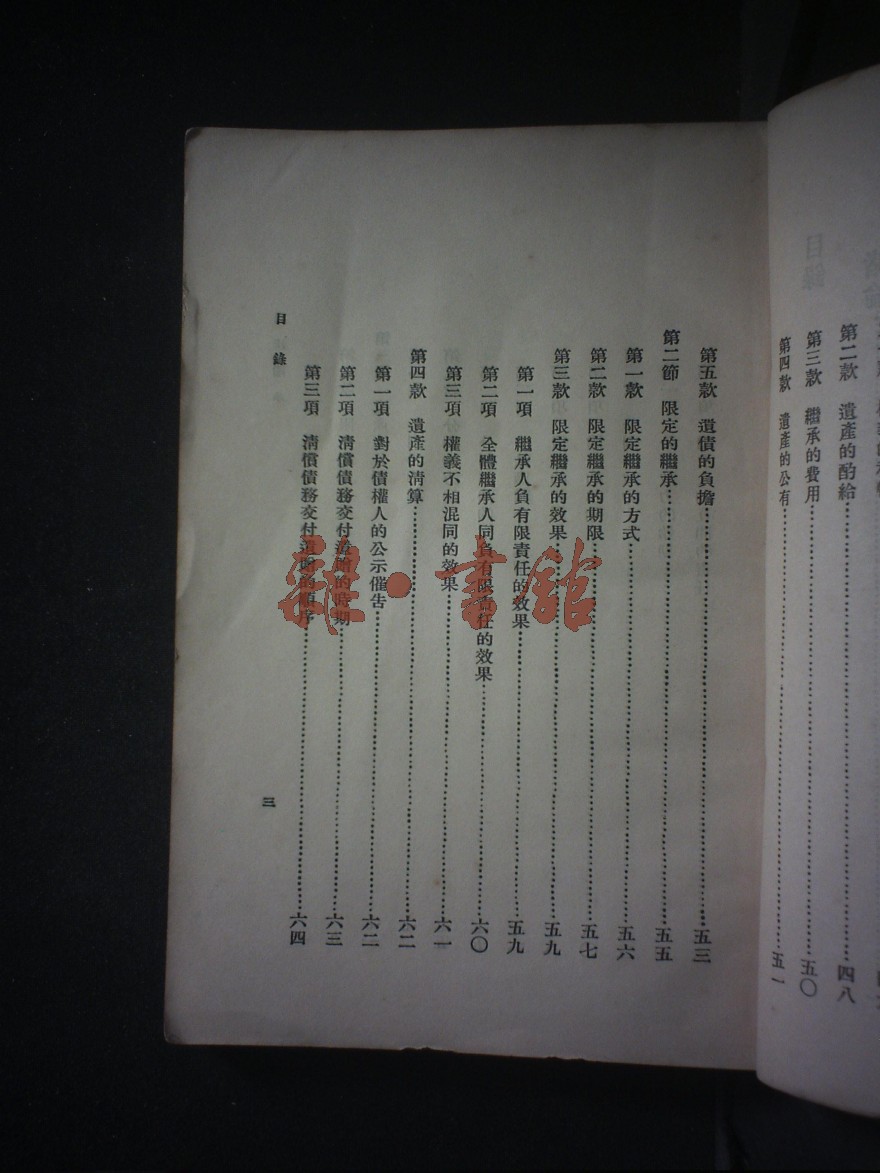 第二款　遺產的酌給……四八
第三款　繼承的費用……五〇
第四款　遺產的公有……五一
第五款　遺債的負擔……五三
第二節　限定的繼承……五五
第一款　限定繼承的方式……五六
第二款　限定繼承的期限……五七
第三款　限定繼承的效果……五九
第一項　繼承人負有限責任的效果……五九
第二項　全體繼承人同負有限責任的效果……六〇
第三項　權義不相混同的效果……六一
第四款　遺產的清算……六二
第一項　對於債權人的公示催告……六二
第二項　清償債務交付遺贈的時期……六三
第三項　清償債務交付遺贈的順序……六四
目錄
三
雜·書館